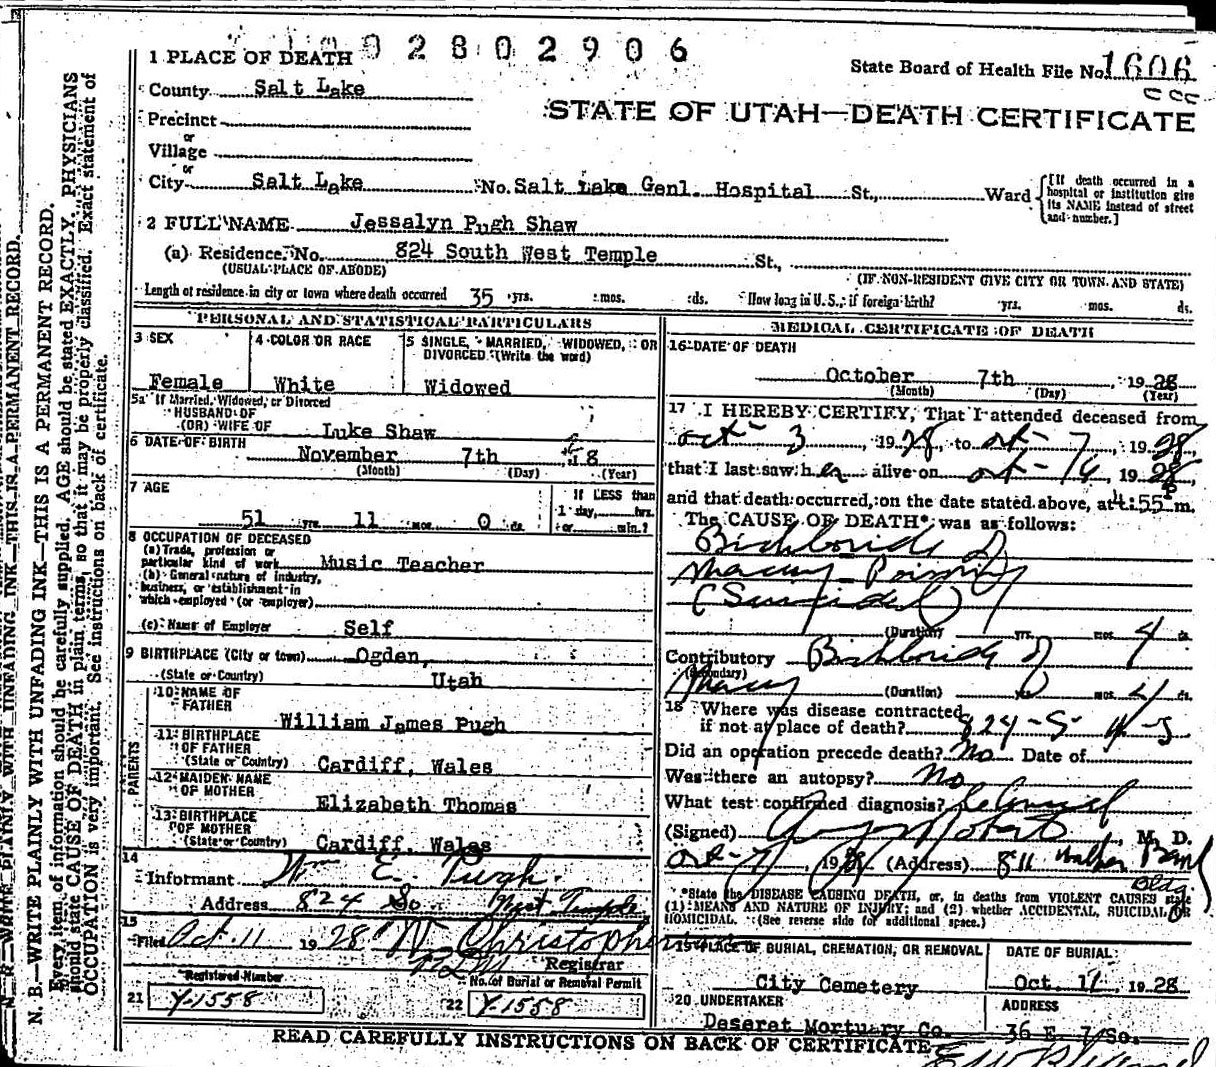 2802906
1 PLACE OF DEATH
State Board of Health File No. 1606
County Salt Lake
STATE OF UTAH—DEATH CERTIFICATE
Precinct
or
Village
or
City Salt Lake No. Salt Lake Genl. Hospital St., Ward [If death occurred in a hospital or institution give its NAME instead of street and number.]
2 FULL NAME Jessalyn Pugh Shaw
(a) Residence, No. 824 South West Temple St.,
(USUAL PLACE OF ABODE) (IF NON-RESIDENT GIVE CITY OR TOWN AND STATE)
Length of residence in city or town where death occurred 35 yrs. mos. ds. How long in U.S., if foreign birth? yrs. mos. ds.
PERSONAL AND STATISTICAL PARTICULARS
3 SEX
Female
4 COLOR OR RACE
White
5 SINGLE, MARRIED, WIDOWED, OR DIVORCED (Write the word)
Widowed
5a If Married, Widowed, or Divorced
HUSBAND OF
(OR) WIFE OF Luke Shaw
6 DATE OF BIRTH
November 7th 18
(Month) (Day) (Year)
7 AGE
51 yrs. 11 mos. 0 ds.
If LESS than
1 day, hrs.
or min.?
8 OCCUPATION OF DECEASED
(a) Trade, profession or
particular kind of work Music Teacher
(b) General nature of industry,
business, or establishment in
which employed (or employer)
(c) Name of Employer Self
9 BIRTHPLACE (City or town) Ogden,
(State or Country) Utah
PARENTS
10 NAME OF
FATHER
William James Pugh
11 BIRTHPLACE
OF FATHER
(State or Country) Cardiff, Wales
12 MAIDEN NAME
OF MOTHER
Elizabeth Thomas
13 BIRTHPLACE
OF MOTHER
(State or Country) Cardiff, Wales
14
Informant Wm E. Pugh.
Address 824 So. West Temple
15
Filed Oct. 11 1928 W Christopherson
Registrar
Registered Number
21 Y-1558
No. of Burial or Removal Permit
22 Y-1558
MEDICAL CERTIFICATE OF DEATH
16 DATE OF DEATH
October 7th, 1928
(Month) (Day) (Year)
17 I HEREBY CERTIFY, That I attended deceased from
Oct- 3, 1928, to Oct- 7, 1928
that I last saw her alive on Oct- , 1928,
and that death occurred, on the date stated above, at 4:55 P m.
The CAUSE OF DEATH* was as follows:
Bichloride of
Mercury Poisoning
(Suicidal)
(Duration) yrs. mos. 4 ds.
Contributory Bichloride of
(Secondary)
Mercury (Duration) yrs. mos. 4 ds.
18 Where was disease contracted
if not at place of death? 824-S-
Did an operation precede death? No Date of
Was there an autopsy? No
What test confirmed diagnosis?
(Signed) , M. D.
Oct-7, 1928 (Address) 811 Walker Bank
Bldg.
*State the DISEASE CAUSING DEATH, or, in deaths from VIOLENT CAUSES state
(1) MEANS AND NATURE OF INJURY; and (2) whether ACCIDENTAL, SUICIDAL OR
HOMICIDAL. (See reverse side for additional space.)
19 PLACE OF BURIAL, CREMATION, OR REMOVAL
City Cemetery
DATE OF BURIAL
Oct. 11 1928
20 UNDERTAKER
Deseret Mortuary Co.
ADDRESS
36 E. 7 So.
READ CAREFULLY INSTRUCTIONS ON BACK OF CERTIFICATE
N. B.—WRITE PLAINLY WITH UNFADING INK—THIS IS A PERMANENT RECORD.
N. B.—WRITE PLAINLY WITH UNFADING INK—THIS IS A PERMANENT RECORD.
Every item of information should be carefully supplied. AGE should be stated EXACTLY. PHYSICIANS
should state CAUSE OF DEATH in plain terms, so that it may be properly classified. Exact statement of
OCCUPATION is very important. See instructions on back of certificate.